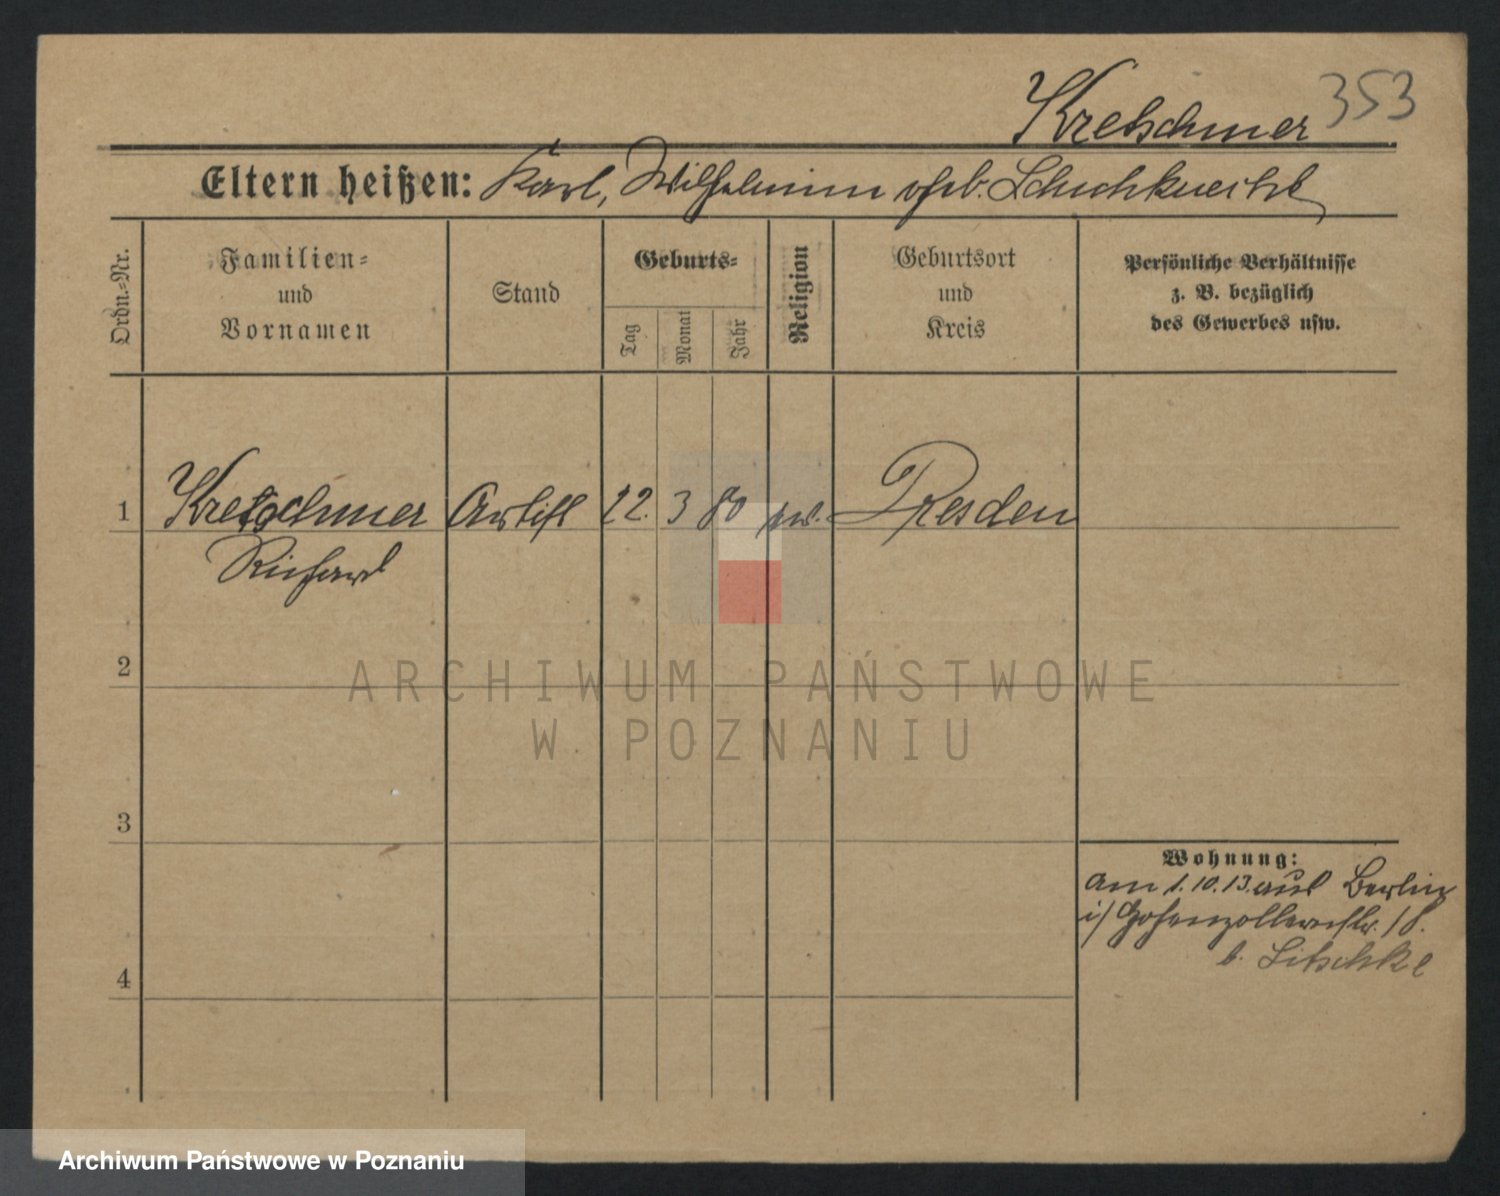 Kretschmer 353
Eltern heißen: Karl, Wilhelmine geb. Schuhknecht
Ordn.-Nr.
Familien-
und
Vornamen
Stand
Geburts-
Tag
Monat
Jahr
Religion
Geburtsort
und
Kreis
Persönliche Verhältnisse
z. B. bezüglich
des Gewerbes usw.
1 Kretschmer Artist 22. 3 80 ev. Dresden
Richard
2
ARCHIWUM PAŃSTWOWE
W POZNANIU
3
Wohnung:
am 1.10.13. aus Berlin
i/ Hohenzollernstr. 18.
b. Litschke
4
Archiwum Państwowe w Poznaniu